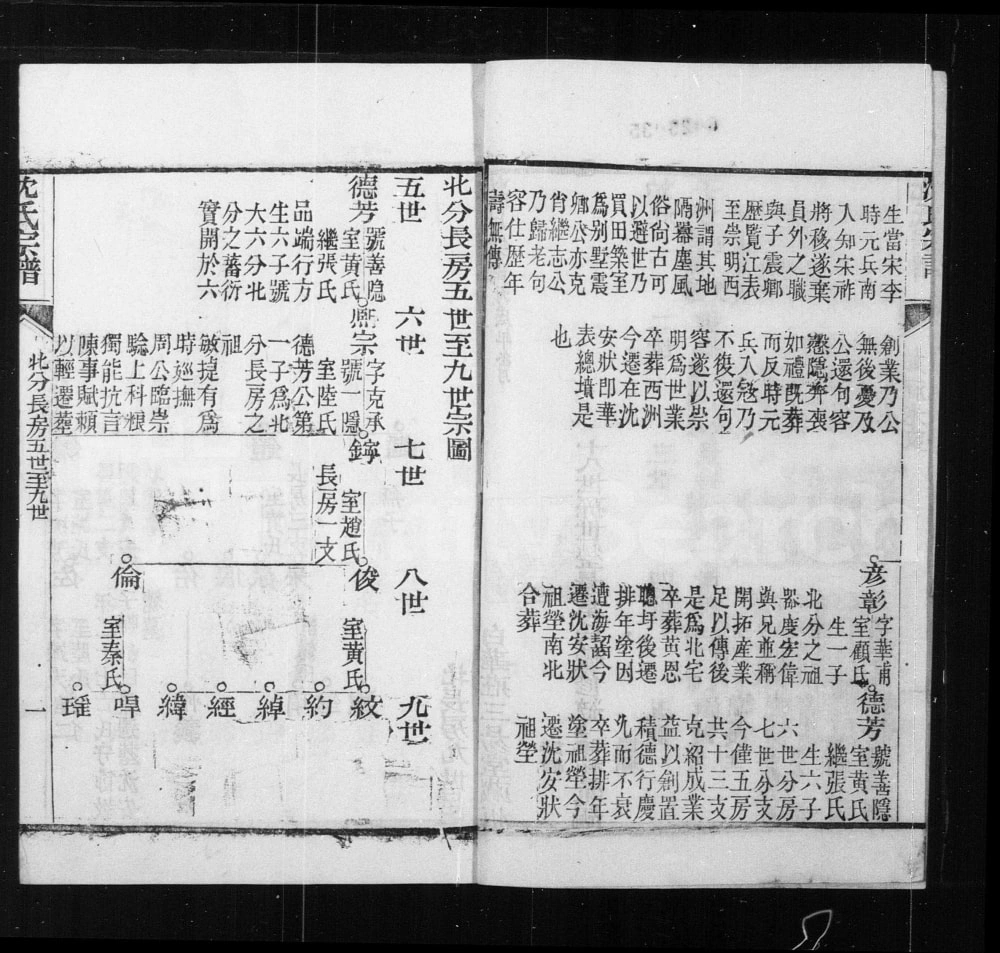 生當宋李
時元兵南
入知宋祚
將移遂棄
員外之職
與子震卿
歷覽江表
至崇明西
洲謂其地
隔嚣塵風
俗尙古可
以避世乃
買田築室
爲别墅震
卿公亦克
肖繼志公
乃歸老句
容仕歷年
壽無傳
創業乃公
無後憂及
公還句容
懸隱奔喪
如禮既葬
而反時元
兵入冦乃
不復還句
容遂以崇
明爲世業
卒葬西洲
今遷在沈
安狀即華
表總墳是
也
彥彰
字華甫
室顧氏
生一子
北分之祖
器度宏偉
與兄並稱
開拓產業
足以傳後
是爲北宅
卒葬黄恩
聰圩後遷
排年塗因
遭海齧今
遷沈安狀
祖塋南北
合葬
德芳
號善隱
室黄氏
繼張氏
生六子
六世分房
七世分支
今僅五房
共十三支
克紹成業
益以創置
積德行慶
久而不衰
卒葬排年
塗祖塋今
遷沈安狀
祖塋
北分長房五世至九世宗圖
五世
六世
七世
八世
九世
德芳
號善隐
室黄氏
繼張氏
品端行方
生六子號
大六分北
分之蕃衍
實開於六
熈宗
字克承
號一隱
室陸氏
德芳公第
一子爲北
分長房之
祖
敏捷有爲
時廵撫
周公臨崇
驗上科粮
獨能抗言
陳事賦頼
以輕遷塟
鋍
室趙氏
長房一支
俊
室黄氏
倫
室秦氏
紋
約
綽
經
緯
哻
璀
沈氏宗譜
北分長房五世至九世
一